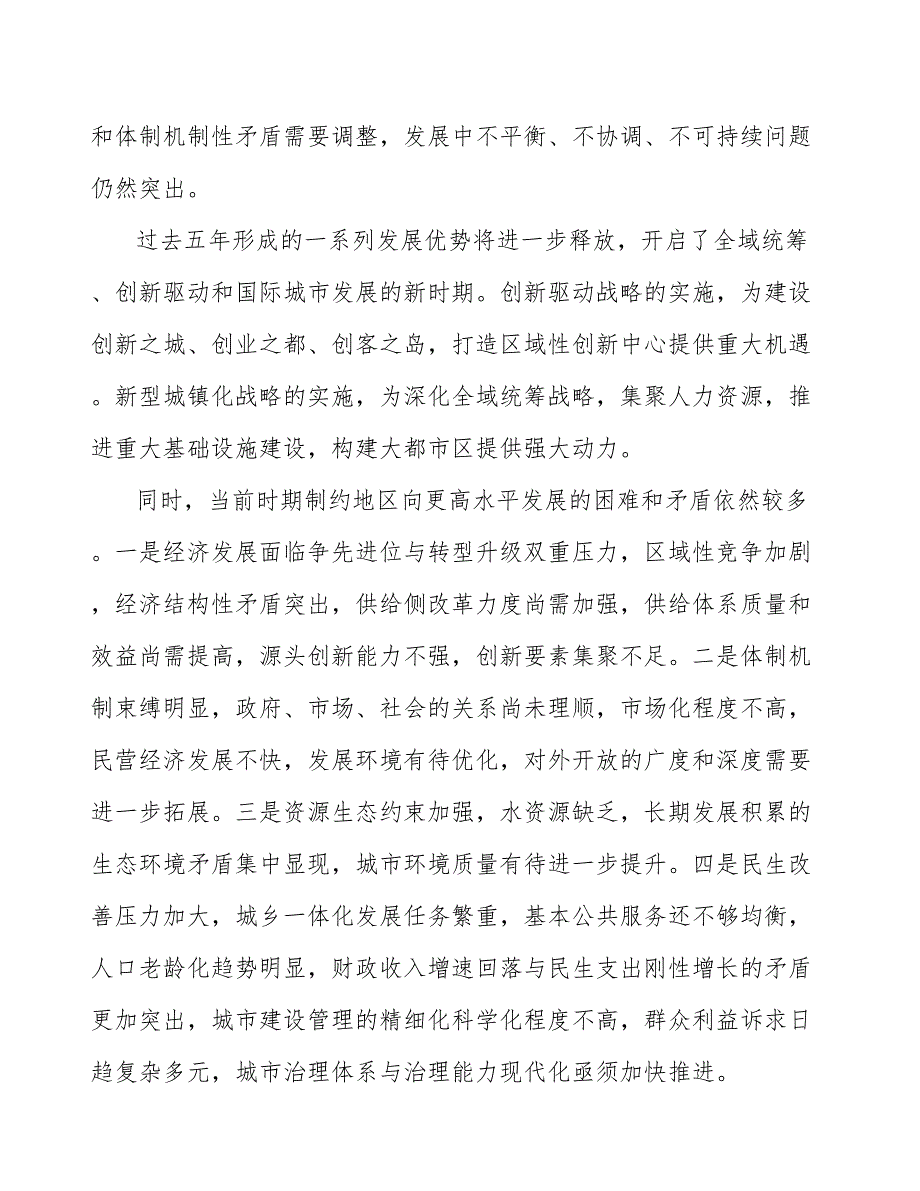 和体制机制性矛盾需要调整，发展中不平衡、不协调、不可持续问题
仍然突出。
过去五年形成的一系列发展优势将进一步释放，开启了全域统筹
、创新驱动和国际城市发展的新时期。创新驱动战略的实施，为建设
创新之城、创业之都、创客之岛，打造区域性创新中心提供重大机遇
。新型城镇化战略的实施，为深化全域统筹战略，集聚人力资源，推
进重大基础设施建设，构建大都市区提供强大动力。
同时，当前时期制约地区向更高水平发展的困难和矛盾依然较多
。一是经济发展面临争先进位与转型升级双重压力，区域性竞争加剧
，经济结构性矛盾突出，供给侧改革力度尚需加强，供给体系质量和
效益尚需提高，源头创新能力不强，创新要素集聚不足。二是体制机
制束缚明显，政府、市场、社会的关系尚未理顺，市场化程度不高，
民营经济发展不快，发展环境有待优化，对外开放的广度和深度需要
进一步拓展。三是资源生态约束加强，水资源缺乏，长期发展积累的
生态环境矛盾集中显现，城市环境质量有待进一步提升。四是民生改
善压力加大，城乡一体化发展任务繁重，基本公共服务还不够均衡，
人口老龄化趋势明显，财政收入增速回落与民生支出刚性增长的矛盾
更加突出，城市建设管理的精细化科学化程度不高，群众利益诉求日
趋复杂多元，城市治理体系与治理能力现代化亟须加快推进。